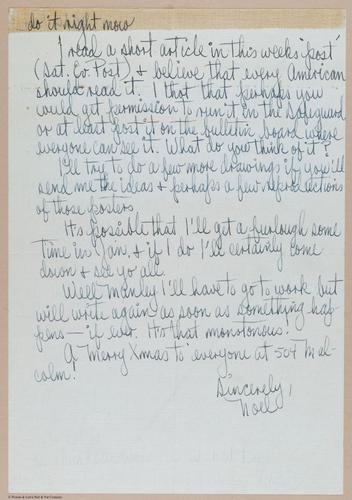 do it right now
I read a short article in this weeks 'post'
(Sat. Ev. Post) & believe that every American
should read it. I that that perhaps you
could get permission to run it in the Safeguard
or at least post it on the bulletin board where
everyone can see it. What do you think of it?
I'll try to do a few more drawings if you'll
send me the ideas & perhaps a few reproductions
of those posters.
It's possible that I'll get a furlough some
time in Jan. & if I do I'll certainly come
down & see yo all.
Well Manley I'll have to go to work but
will write again as soon as something hap-
pens — if ever. It's that monotonous!
A 'Merry Xmas' to everyone at 504 Mal-
colm.
Sincerely,
Noel